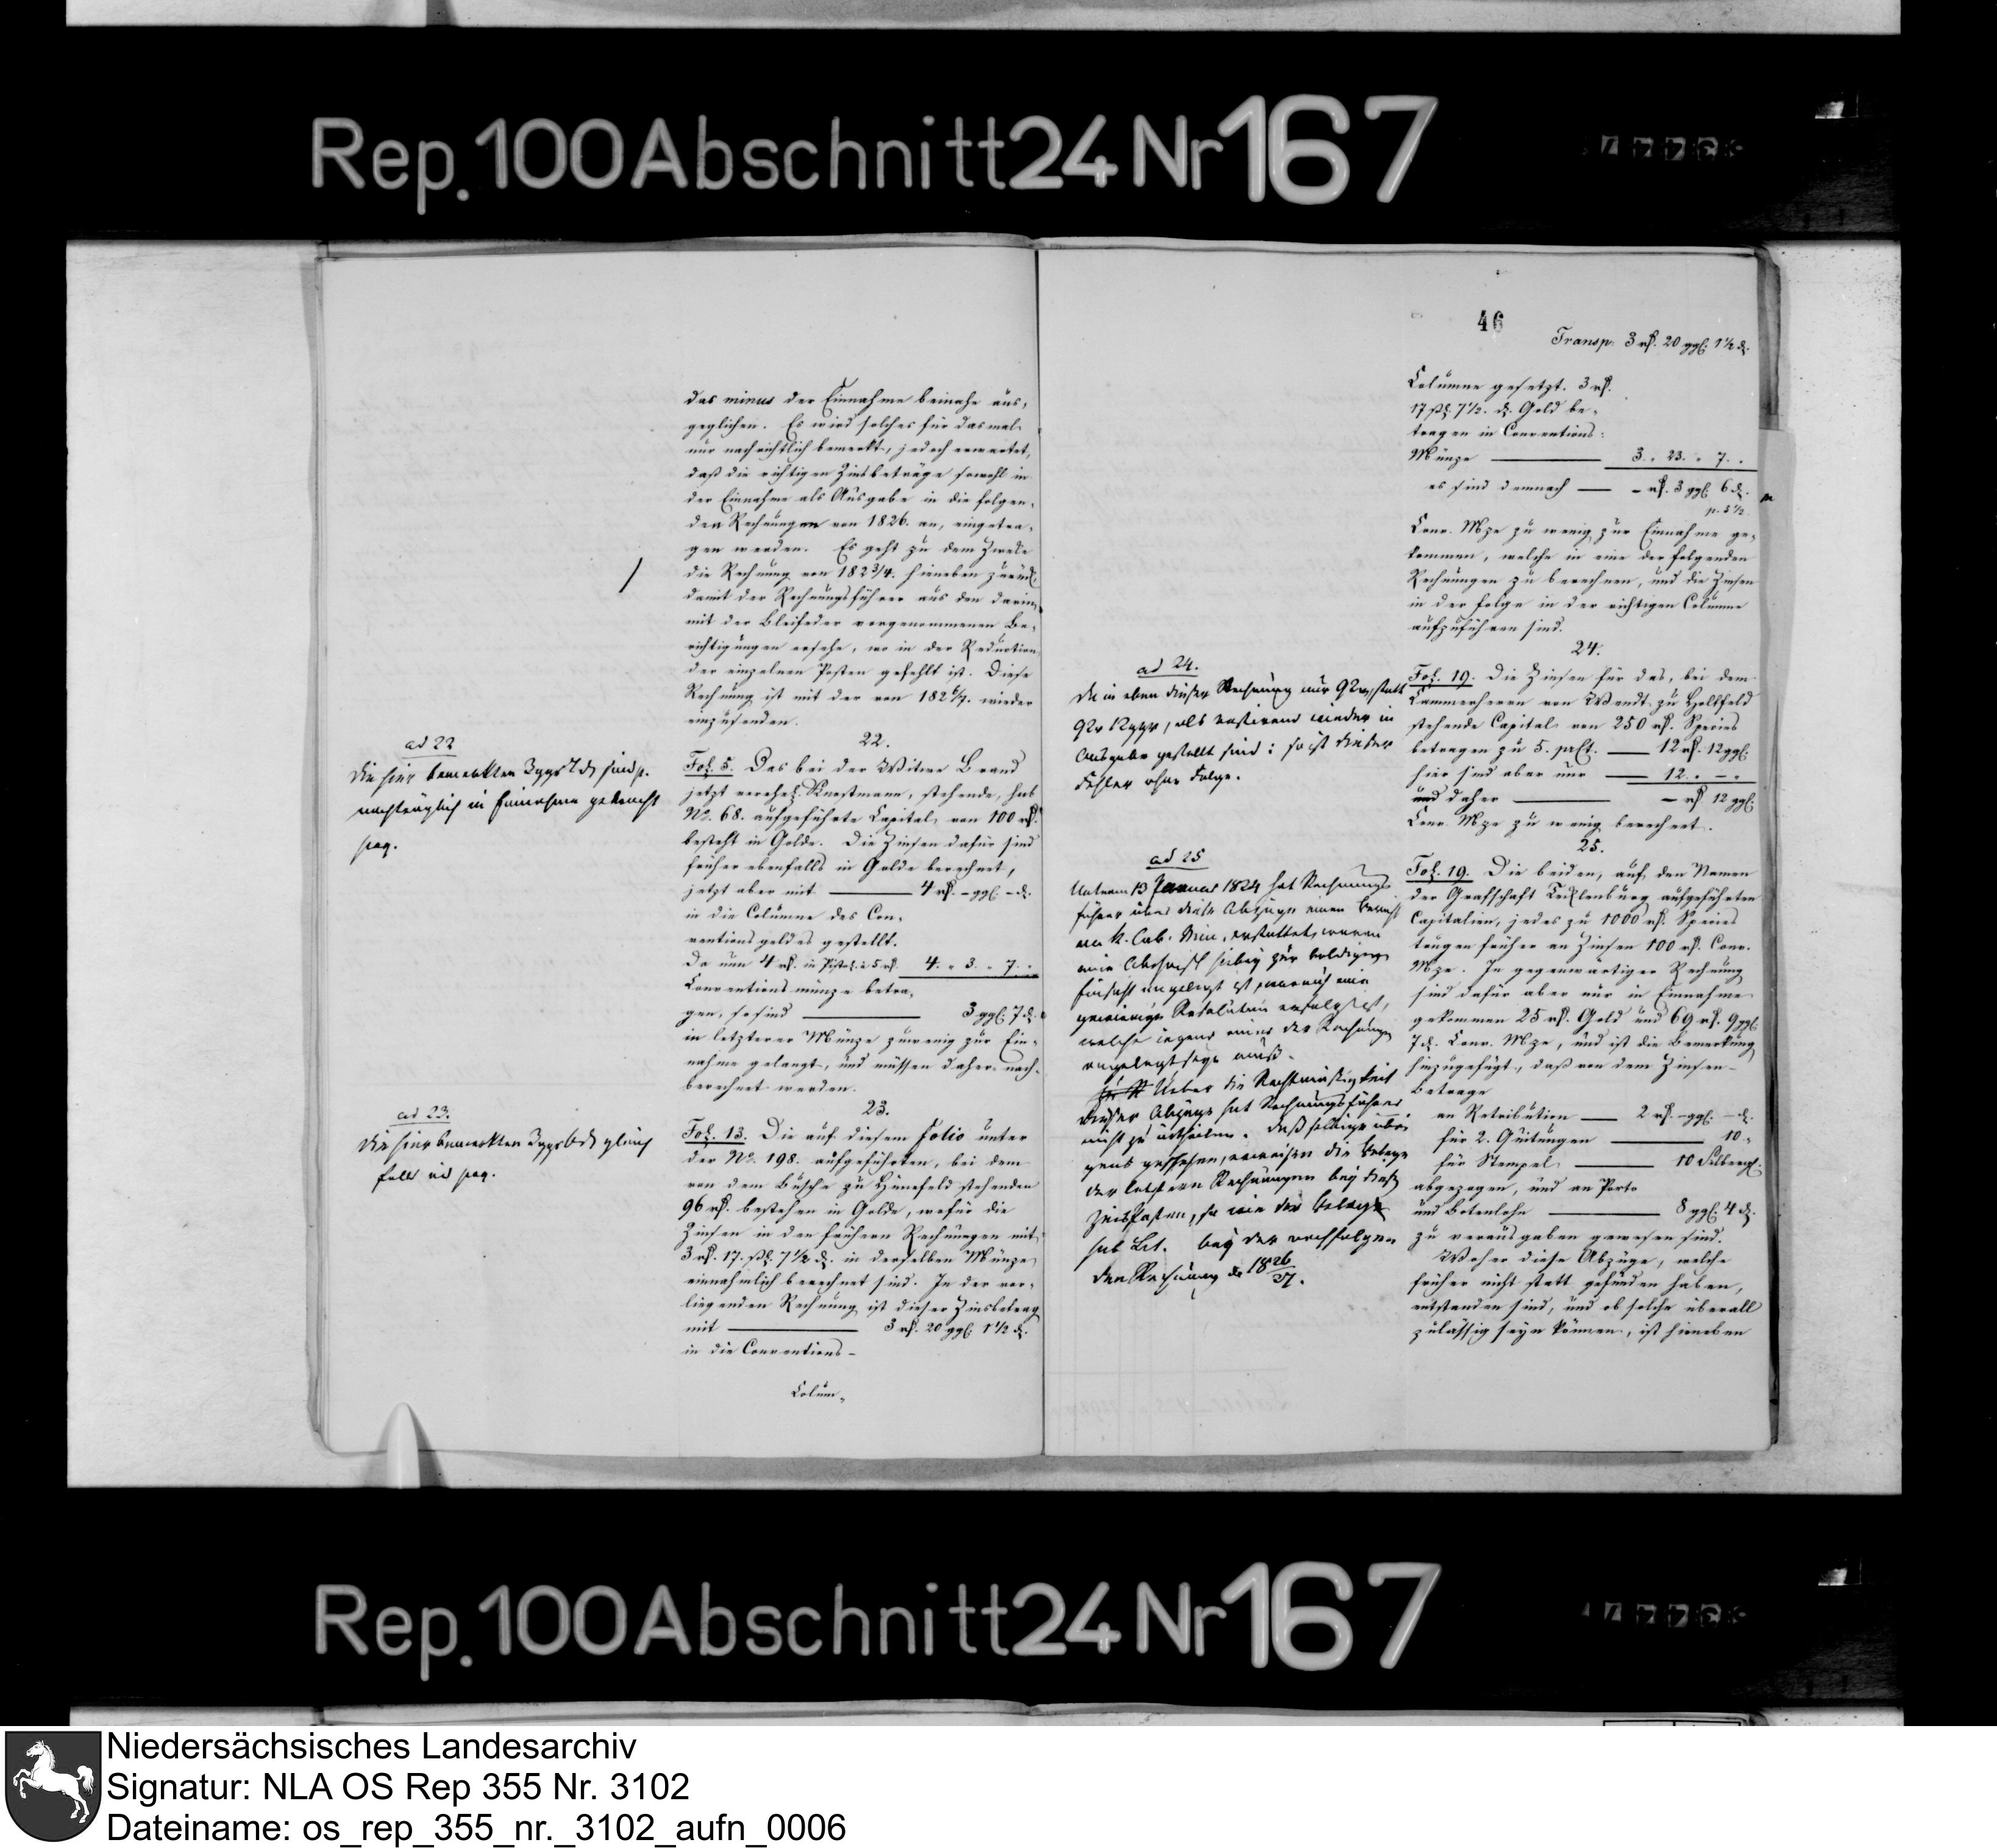 Rep. 100 Abschnitt 24 Nr 167
das minus der Einnahme beinahe aus,
geglichen. Es wird solches für dasmal
nur nachrichtlich bemerkt, jedoch erwartet,
daß die richtigen Zinsbeträge sowohl in
der Einnahme als Ausgabe in die folgen,
den Rechnungen von 1826. an, eingetra,
gen werden. Es geht zu dem Zwecke
die Rechnung von 182 3/4. hieneben zurück,
damit der Rechnungsführer aus den darin,
mit der Bleifeder vorgenommenen Be,
richtigungen ersehe, wo in der Reduction
der einzelnen Posten gefehlt ist. Diese
Rechnung ist mit der von 182 6/7. wieder
einzusenden.
ad 22
Die hier bemerkten 3 ggr 7 d sind p.
nachträglich in Einnahme gebracht
pag.
22.
Fol. 5. Das bei der Witwe Brand
jetzt verehel. Knostmann, stehende, sub
No. 68. aufgeführte Capital von 100 rt.
besteht in Golde. Die Zinsen dafür sind
früher ebenfalls in Golde berechnet,
jetzt aber mit — 4 rt. - ggl. - d.
in die Columne des Con,
ventionsgeldes gestellt.
Da nun 4 rt. in Pistol. à 5 rt. 4. " 3. " 7. "
Conventionsmünze betra,
gen, so sind — 3 ggl. 7 d.
in letzterer Münze zuwenig zur Ein,
nahme gelangt, und müssen daher nach,
berechnet werden.
ad 23.
Die hier bemerkten 3 ggr 6 d gleich
falls ad pag.
23.
Fol. 13. Die auf diesem folio unter
der No. 198. aufgeführten, bei dem
von dem Busche zu Hünefeld stehenden
96 rt. bestehen in Golde, wofür die
Zinsen in den frühern Rechnungen mit
3 rt. 17. ßl. 7 1/2 d. in derselben Münze
einnahmlich berechnet sind. In der vor,
liegenden Rechnung ist dieser Zinsbetrag
mit — 3 rt. 20 ggl. 1 1/2 d.
in die Conventions-
Colum,
46
Transp. 3 rt. 20 ggl. 1 1/2 d.
Columne gesetzt. 3 rt.
17 ßl. 7 1/2. d. Gold be,
tragen in Conventions:
Münze — 3. " 23. " 7. "
es sind demnach — - rt. 3 ggl. 6 d.
p. 5 1/2
Conv. Mze zu wenig zur Einnahme ge,
kommen, welche in eine der folgenden
Rechnungen zu berechnen, und die Zinsen
in der folge in der richtigen Columne
aufzuführen sind.
ad 24.
Da in eben dieser Rechnung nur 9 rt, statt
9 rt 12 ggr, als restirend wieder in
Ausgabe gestellt sind: so ist dieser
Fehler ohne Folge.
24.
Fol. 19. Die Zinsen für das, bei dem
Cammerherrn von Wendt zu Holtfeld
stehende Capital von 250 rt. Species
betragen zu 5. prCt. — 12 rt. 12 ggl.
hier sind aber nur — 12. " - "
und daher — - rt 12 ggl.
Conv. Mze zu wenig berechnet.
ad 25
Unterm 13 Januar 1824 hat Rechnungs
führer über diese Abzüge einen Bericht
an K. Cab. Min. erstattet, wovon
eine Abschrift hiebey zur baldigen
Einsicht angelegt ist, worauf eine
Resolution erfolgt ist,
welche irgend einer der Rechnungen
angelegt seyn muß.
Ueber die Rechtmäßigkeit
dieser Abzüge hat Rechnungsführer
nicht zu urtheilen. Daß selbige übri
gens geschehen, erweisen die Belege
der letztern Rechnungen bey dieser
so wie der Belege
sub Lit. bey der nachfolgen
den Rechnung de 1826/27.
25.
Fol. 19. Die beiden, auf den Namen
der Grafschaft Tecklenburg aufgeführten
Capitalien, jedes zu 1000 rt. Species
trugen früher an Zinsen 100 rt. Conv.
Mze. In gegenwärtiger Rechnung
sind dafür aber nur in Einnahme
gekommen 25 rt. Gold und 69 rt. 9 ggl.
7 d. Conv. Mze, und ist die Bemerkung
hinzugefügt, daß von dem Zinsen-
betrage
an Retribution — 2 rt. - ggl. - d.
für 2. Quitungen — 10 "
für Stempel — 10 Silbergl.
abgezogen, und an Porto
und Botenlohn — 8 ggl. 4 d.
zu verausgaben gewesen sind.
Woher diese Abzüge, welche
früher nicht statt gefunden haben,
entstanden sind, und ob solche überall
zulässig seyn können, ist hieneben
Rep. 100 Abschnitt 24 Nr 167
Niedersächsisches Landesarchiv
Signatur: NLA OS Rep 355 Nr. 3102
Dateiname: os_rep_355_nr._3102_aufn_0006